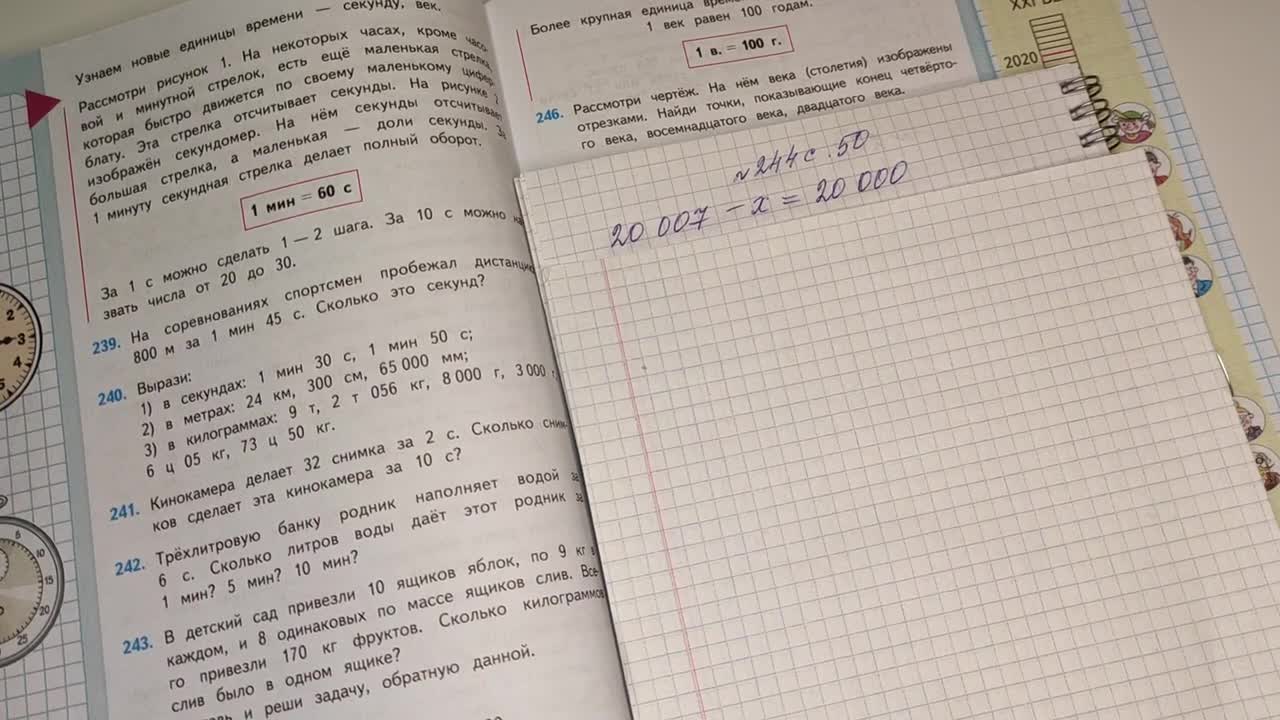 Узнаем новые единицы времени — секунду, век.
Рассмотри рисунок 1. На некоторых часах, кроме часо-
вой и минутной стрелок, есть ещё маленькая стрелка,
которая быстро движется по своему маленькому цифер-
блату. Эта стрелка отсчитывает секунды. На рисунке 2
изображён секундомер. На нём секунды отсчитывает
большая стрелка, а маленькая — доли секунды. За
1 минуту секундная стрелка делает полный оборот.
1 мин = 60 с
За 1 с можно сделать 1 — 2 шага. За 10 с можно на
звать числа от 20 до 30.
239. На соревнованиях спортсмен пробежал дистанцию
800 м за 1 мин 45 с. Сколько это секунд?
240. Вырази:
1) в секундах: 1 мин 30 с, 1 мин 50 с;
2) в метрах: 24 км, 300 см, 65 000 мм;
3) в килограммах: 9 т, 2 т 056 кг, 8 000 г, 3 000
6 ц 05 кг, 73 ц 50 кг.
241. Кинокамера делает 32 снимка за 2 с. Сколько сним-
ков сделает эта кинокамера за 10 с?
242. Трёхлитровую банку родник наполняет водой за
6 с. Сколько литров воды даёт этот родник за
1 мин? 5 мин? 10 мин?
243. В детский сад привезли 10 ящиков яблок, по 9 кг в
каждом, и 8 одинаковых по массе ящиков слив. Все-
го привезли 170 кг фруктов. Сколько килограммов
слив было в одном ящике?
и реши задачу, обратную данной.
Более крупная единица
1 век равен 100 годам.
1 в. = 100 г.
246. Рассмотри чертёж. На нём века (столетия) изображены
отрезками. Найди точки, показывающие конец четвёрто-
го века, восемнадцатого века, двадцатого века.
№244 с.50
20 007 - х = 20 000
2020
2
3
4
5
5
10
15
20
25